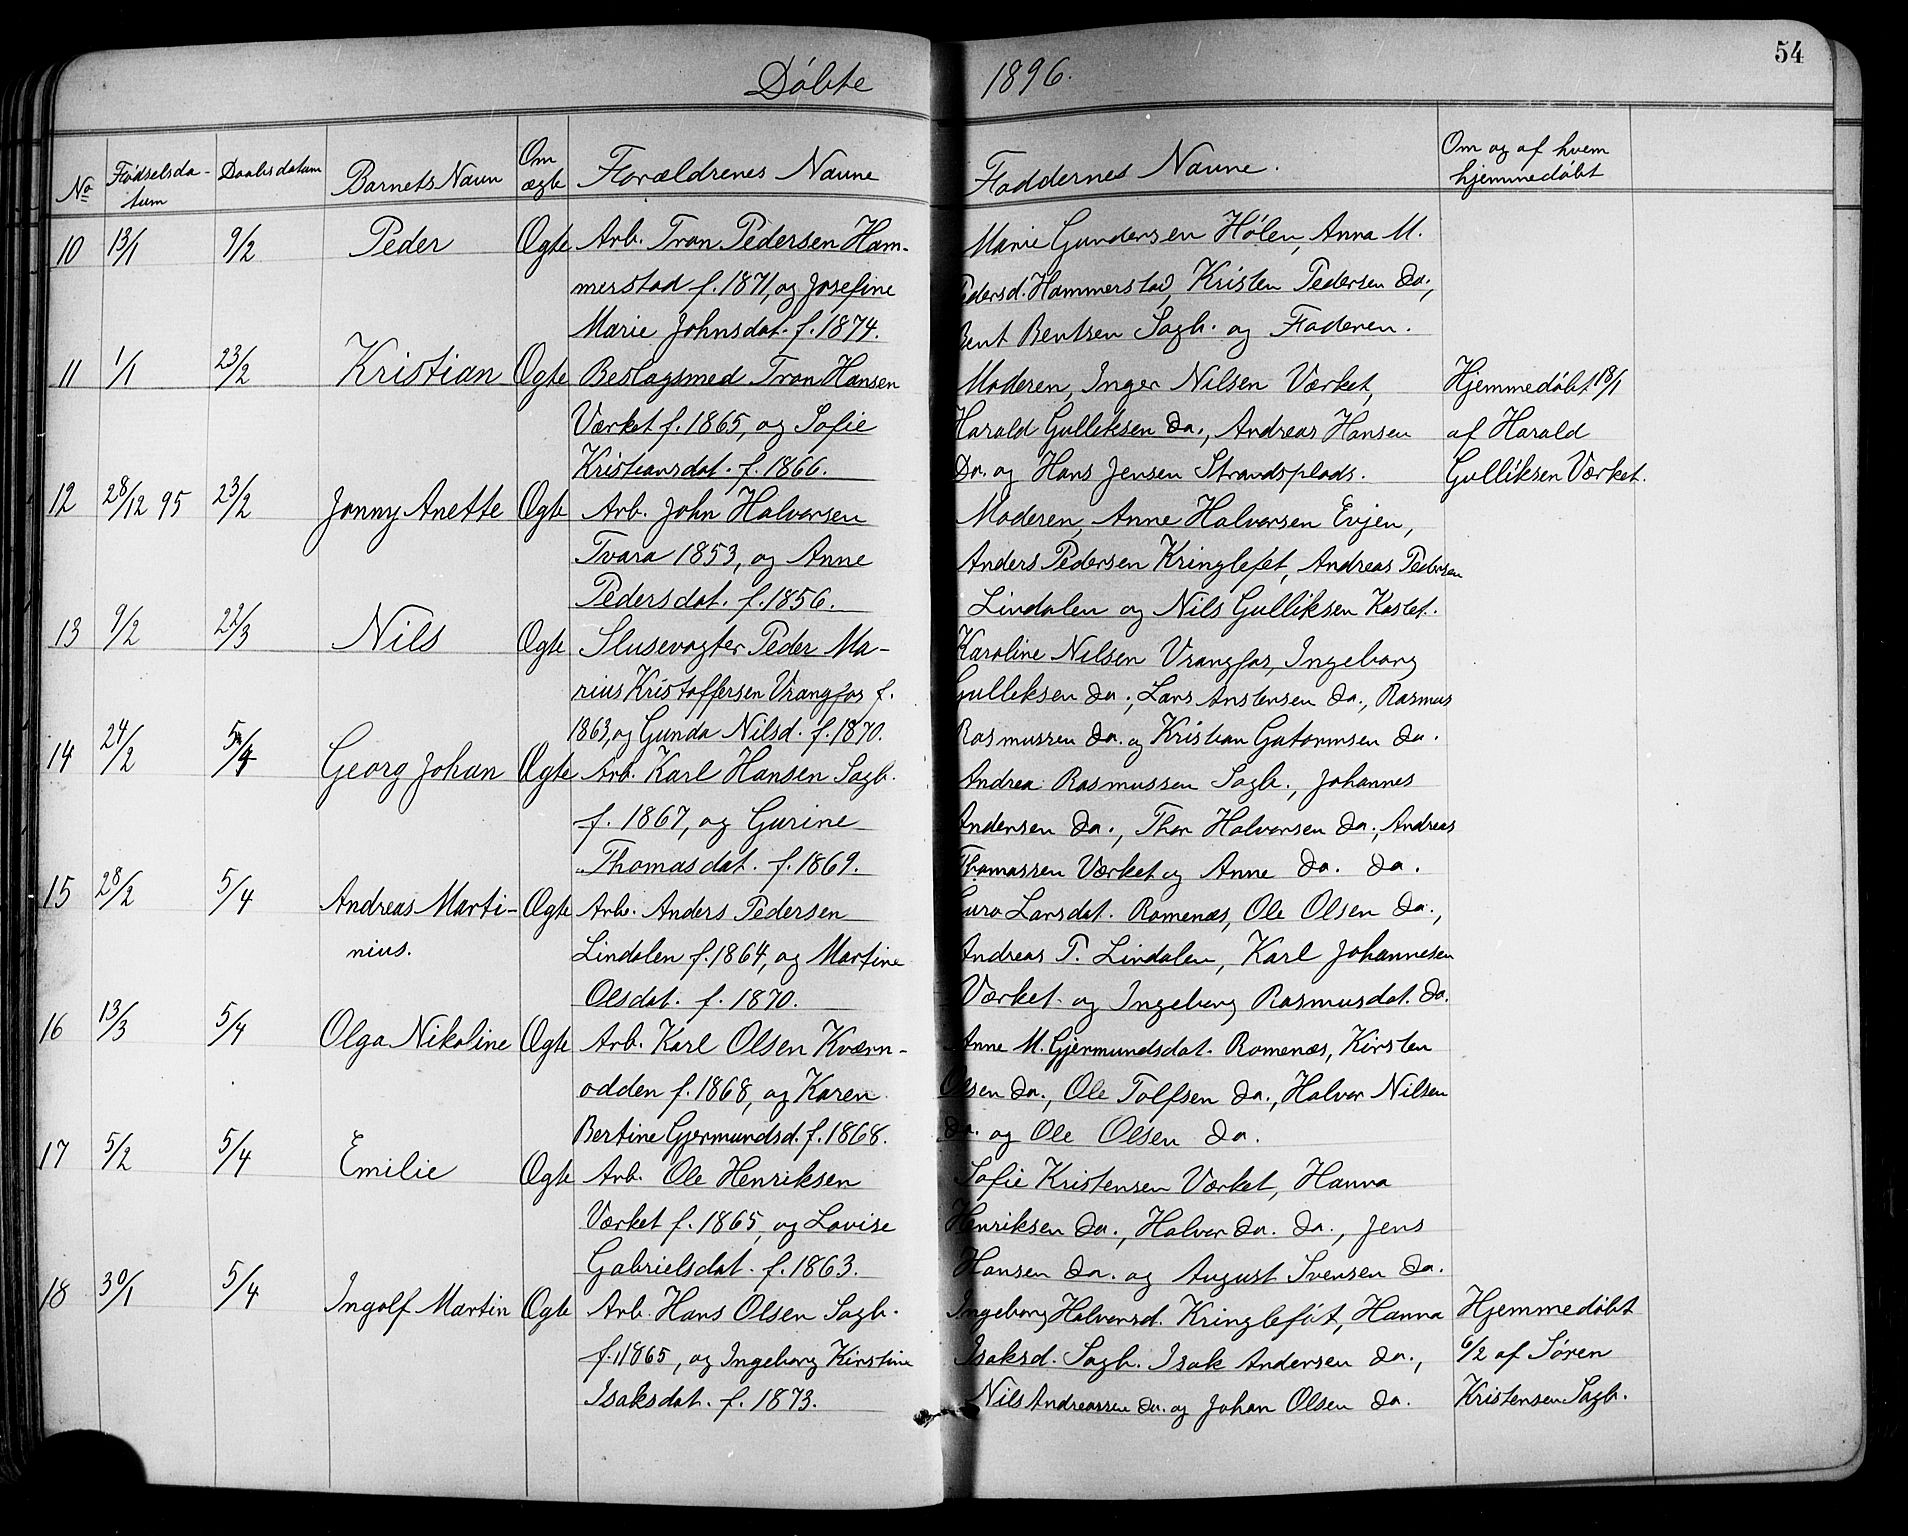 54
Døbte 1896.
No Fødselsda-tum Daabsdatum Barnets Navn Om ægte Forældrenes Navne Faddernes Navne. Om og af hvem hjemmedøbt
10 13/1 9/2 Peder Ægte Arb. Tron Pedersen Ham- Marie Gundersen Hølen, Anna M.
merstad f. 1871, og Josefine Pedersd. Hammerstad, Kristen Pedersen do.,
Marie Johnsdat. f. 1874. Bent Bentsen Sagb. og Faderen.
11 1/1 23/2 Kristian Ægte Beslagsmed Tron Hansen Moderen, Inger Nilsen Værket, Hjemmedøbt 18/1
Værket f. 1865, og Sofie Harald Gulliksen do., Andreas Hansen af Harald
Kristiansdat. f. 1866. Do. og Hans Jensen Strandsplads. Gulliksen Værket.
12 28/12 95 23/2 Jonny Anette Ægte Arb. John Halvorsen Moderen, Anne Halvorsen Evjen,
Tvara 1853, og Anne Anders Pedersen Kringlefet, Andreas Pedersen
Pedersdat. f. 1856. Lindalen og Nils Gulliksen Kaslet.
13 9/2 22/3 Nils Ægte Slusevogter Peder Ma- Karoline Nilsen Vrangfos, Ingeborg
rius Kristoffersen Vrangfos f. Gulliksen do., Lars Anstensen do., Rasmus
1863, og Gunda Nilsd. f. 1870. Rasmussen do. og Kristian Gutormsen do.
14 24/2 5/4 Georg Johan Ægte Arb. Karl Hansen Sagb. Andrea Rasmussen Sagb., Johannes
f. 1867, og Gurine Andersen do., Thor Halvorsen do., Andreas
Thomasdat. f. 1869. Thomassen Værket og Anne do. do.
15 28/2 5/4 Andreas Marti- Ægte Arb. Anders Pedersen Guro Larsdat. Romenæs, Ole Olsen do.,
nius. Lindalen f. 1864, og Martine Andreas P. Lindalen, Karl Johannesen
Olsdat. f. 1870. Værket og Ingeborg Rasmusdat. do.
16 13/3 5/4 Olga Nikoline Ægte Arb. Karl Olsen Kværn- Anne M. Gjermundsdat. Romenæs, Kirsten
odden f. 1868, og Karen Olsen do., Ole Tolfsen do., Halvor Nilsen
Bertine Gjermundsd. f. 1868. do. og Ole Olsen do.
17 5/2 5/4 Emilie Ægte Arb. Ole Henriksen Sofie Kristensen Værket, Hanna
Værket f. 1865, og Lovise Henriksen do., Halvor do. do., Jens
Gabrielsdat. f. 1863. Hansen do. og August Svensen do.
18 30/1 5/4 Ingolf Martin Ægte Arb. Hans Olsen Sagb. Ingeborg Halvorsd. Kringleføt, Hanna Hjemmedøbt
f. 1865, og Ingeborg Kirstine Isaksd. Sagb. Isak Andersen do., 6/2 af Søren
Isaksdat. f. 1873. Nils Andreassen do. og Johan Olsen do. Kristensen Sagb.